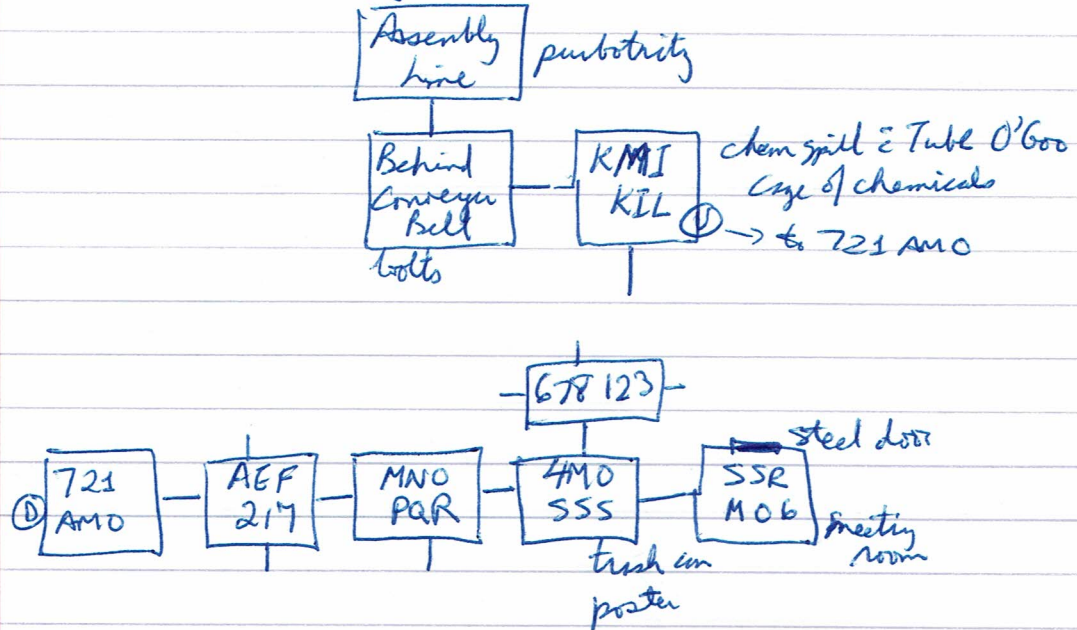 Assembly
Line
purbotrity
Behind
Conveyer
Belt
bolts
KMI
KIL
U
chem spill c̄ Tube O'Goo
Cage of chemicals
→ to 721 AMO
678 123
D
721
AMO
AEF
217
MNO
PQR
4MO
SSS
trash can
poster
SSR
MO6
steel door
meeting
room